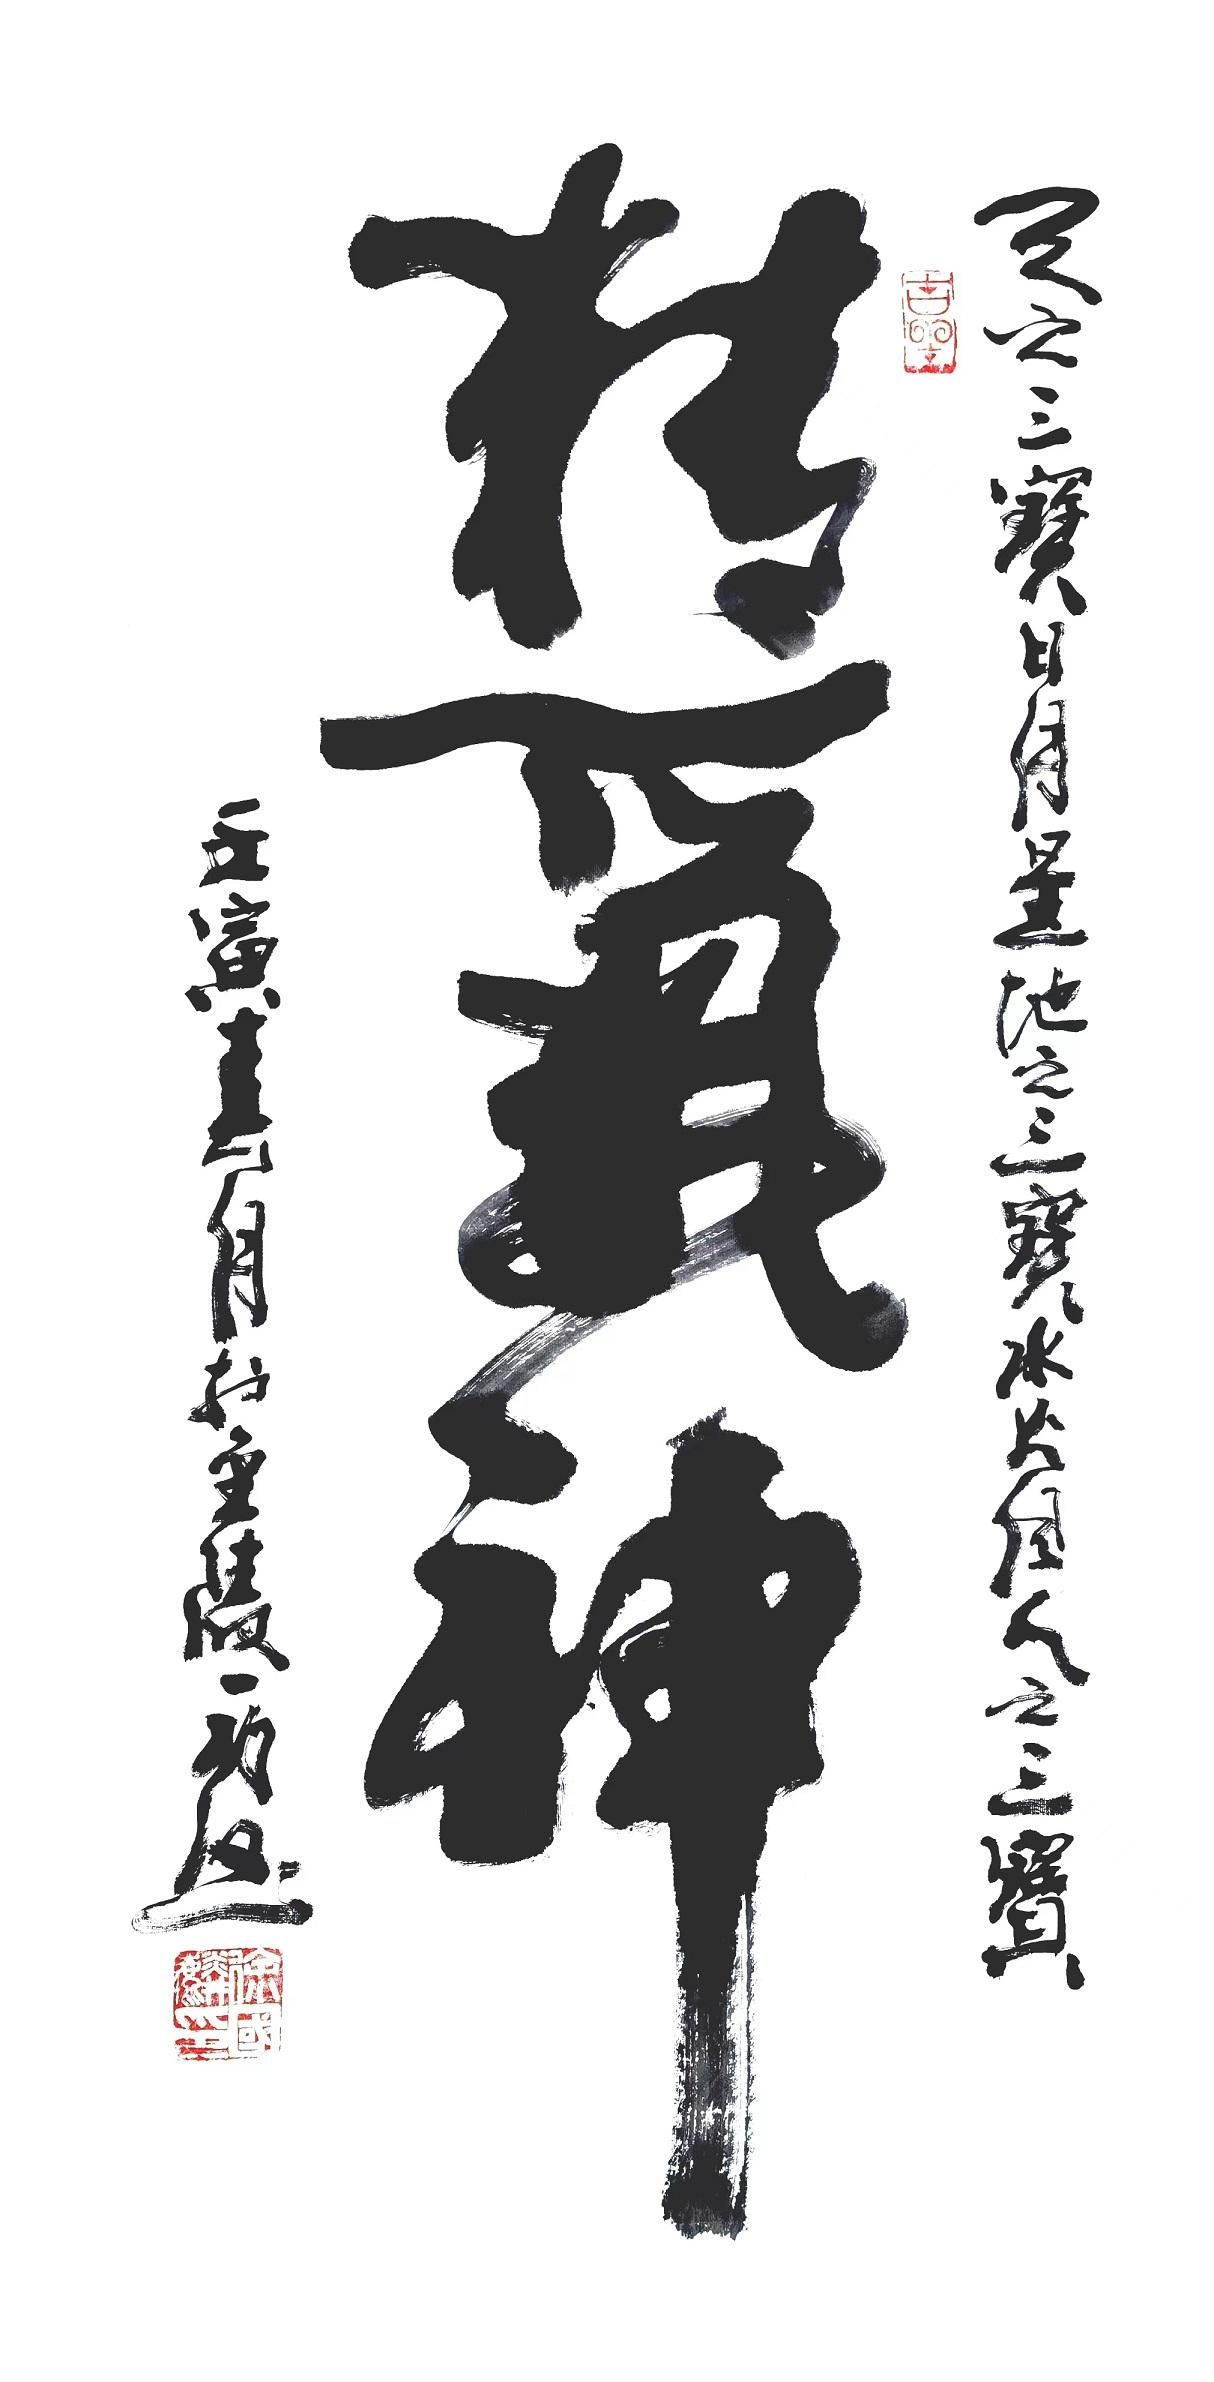 天之三寶日月星地之三寶水火風人之三寶
精氣神
壬寅春月於金陵一